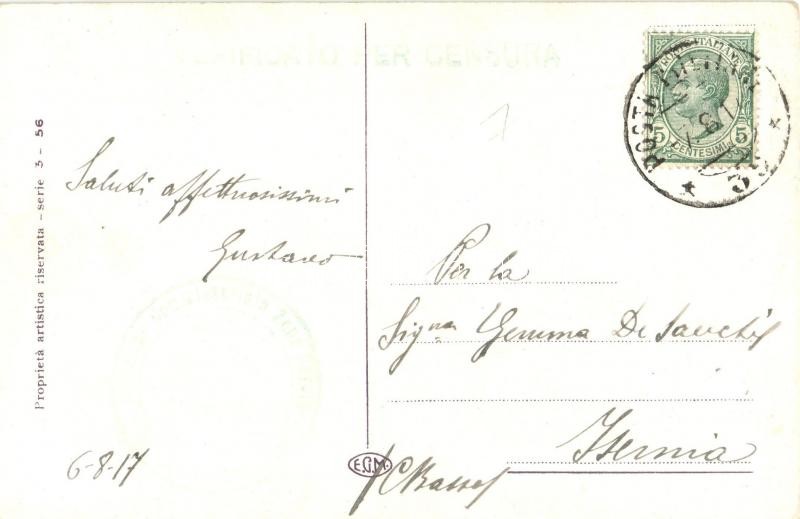 VERIFICATO PER CENSURA
POSTE ITALIANE
5 5
CENTESIMI
POSTA MILITARE
Saluti affettuosissimi
Gustavo
6-8-17
Proprietà artistica riservata - serie 3 - 56
Per la
Sig.na Gemma De Sanctis
Isernia
E.G.M.